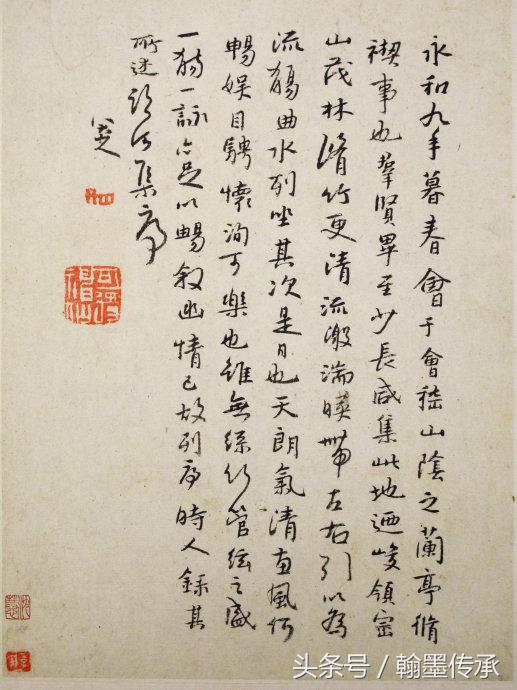 永和九年暮春會于會稽山陰之蘭亭脩
禊事也羣賢畢至少長咸集此地迺峻領崇
山茂林脩竹更清流激湍暎帶左右引以為
流觴曲水列坐其次是日也天朗氣清惠風和
暢娛目騁懷洵可樂也雖無絲竹管絃之盛
一觴一詠亦足以暢敘幽情已故列序時人錄其
所述臨河集序
可得神仙
头条号 / 翰墨传承